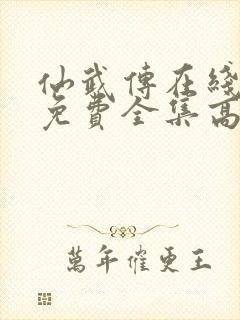 仙武傳在綫
免費全集高
萬年催更王